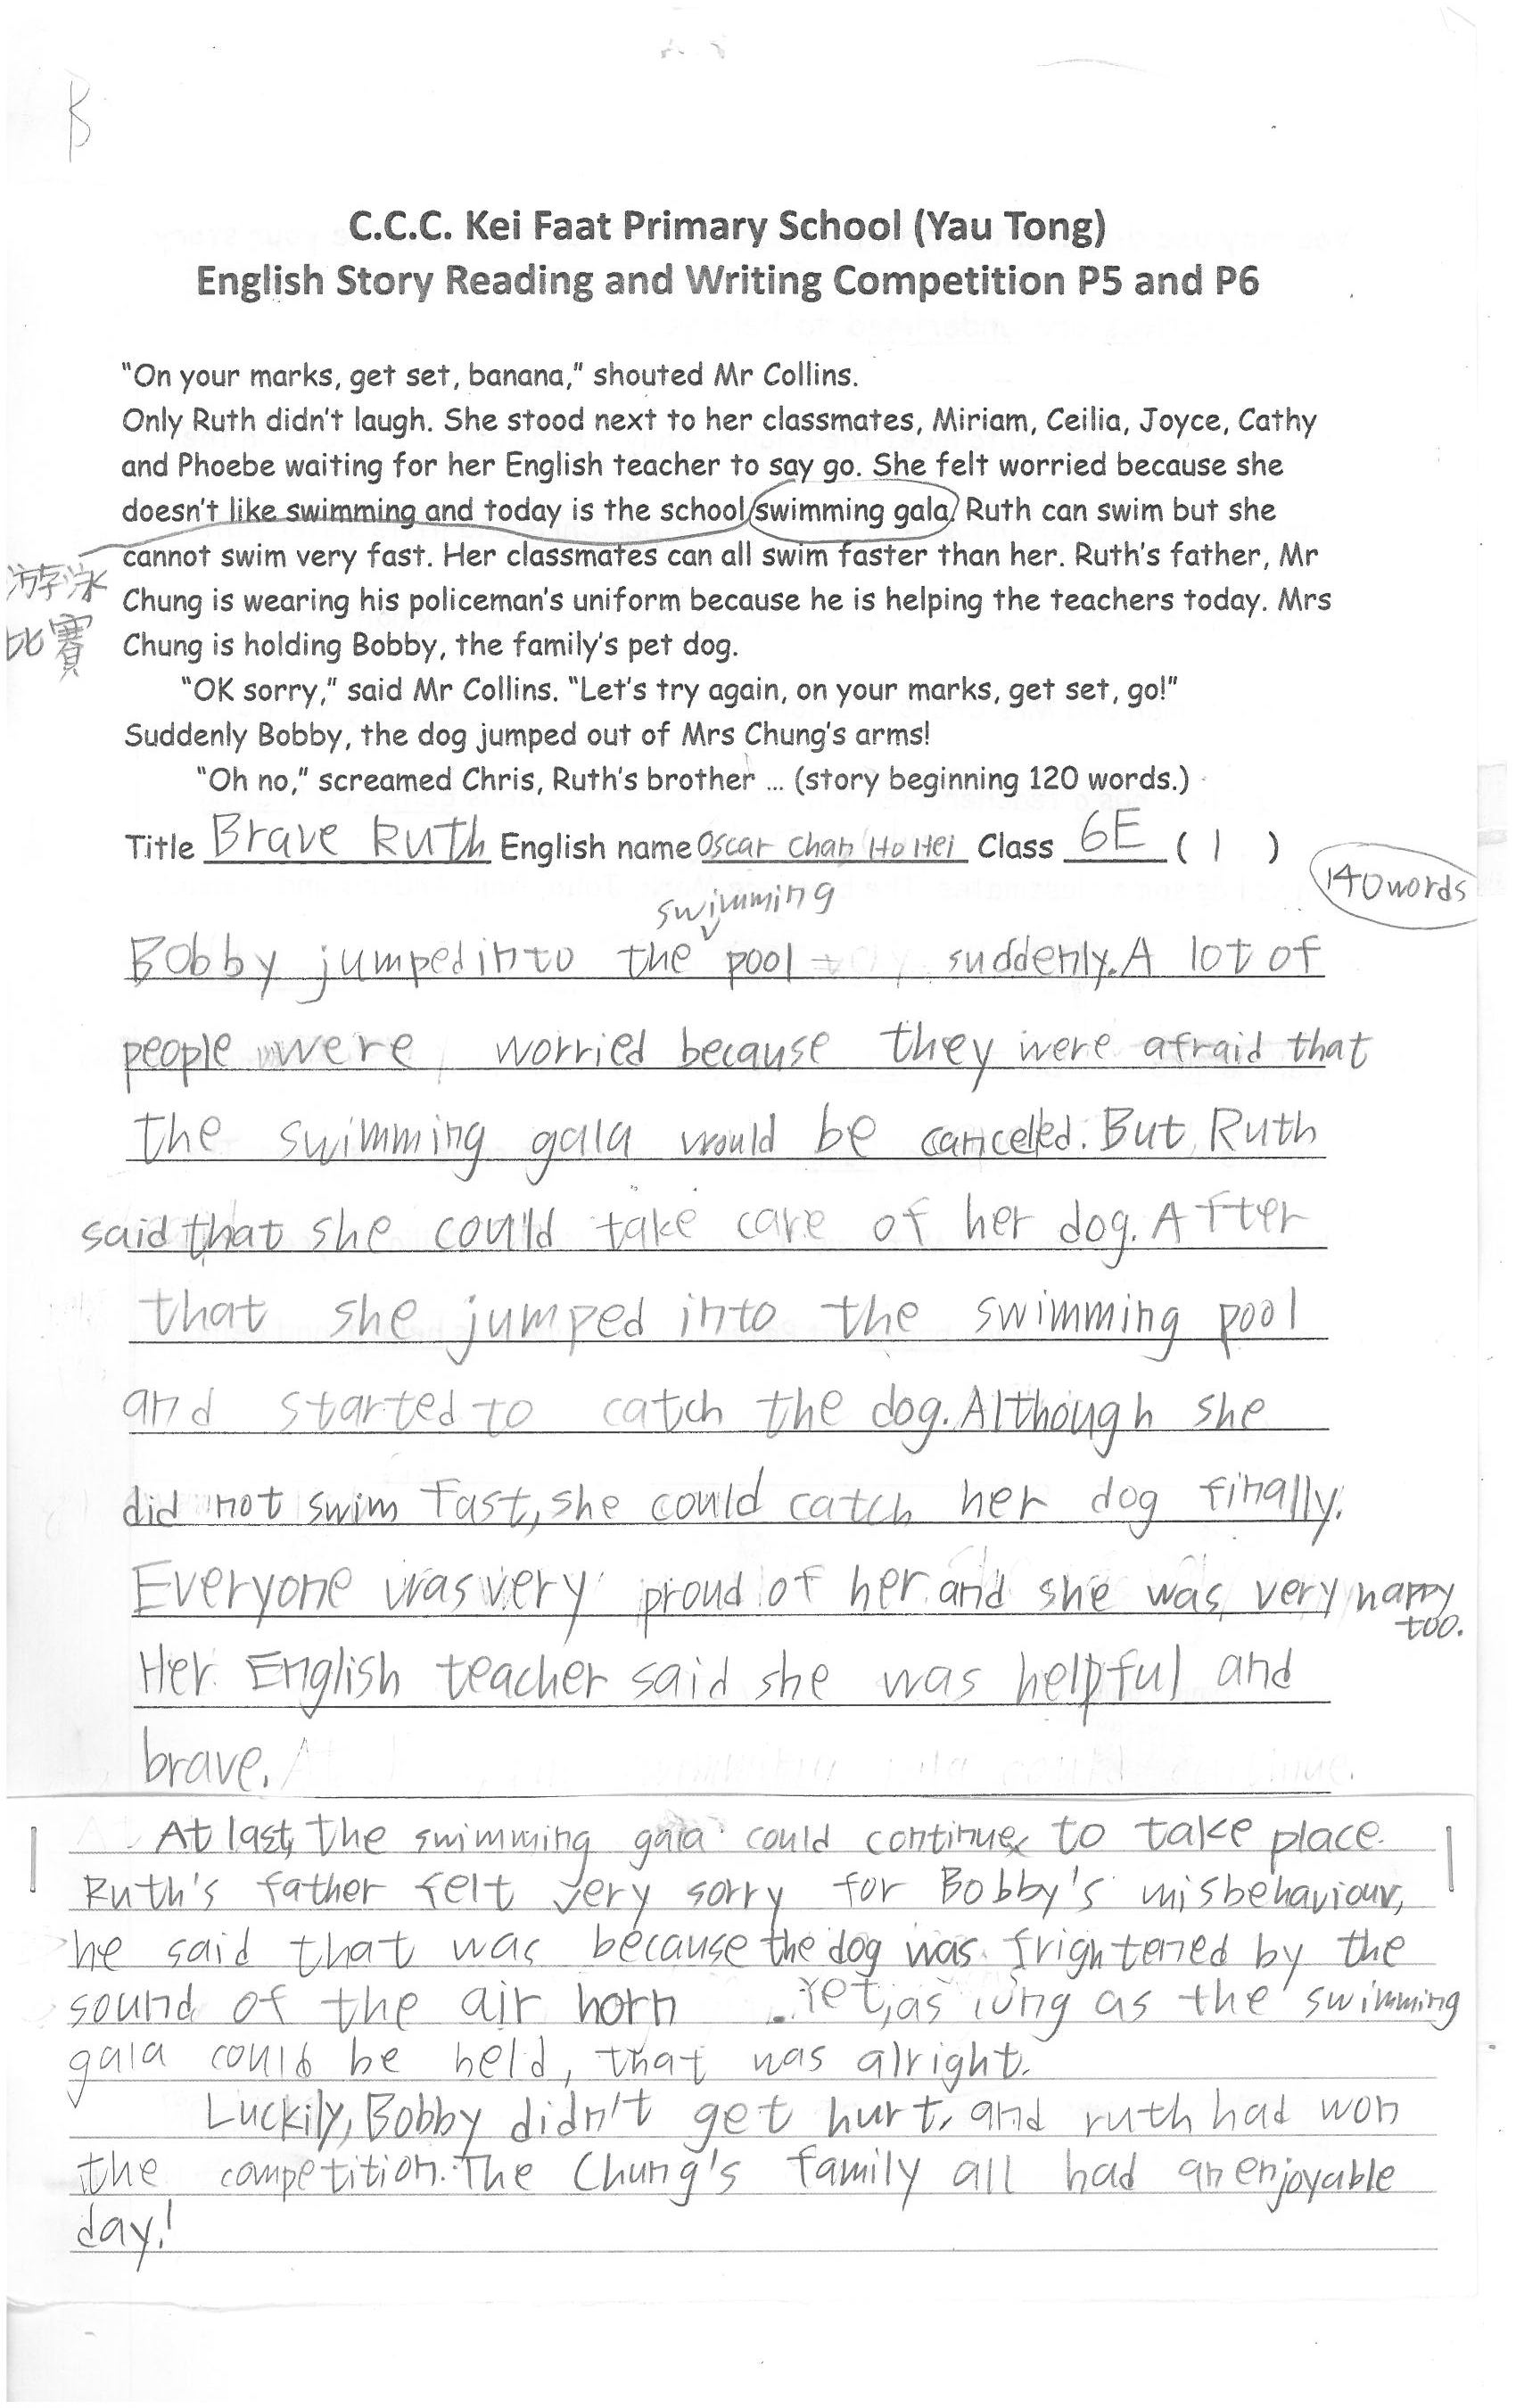 B
C.C.C. Kei Faat Primary School (Yau Tong)
English Story Reading and Writing Competition P5 and P6
"On your marks, get set, banana," shouted Mr Collins.
Only Ruth didn't laugh. She stood next to her classmates, Miriam, Ceilia, Joyce, Cathy
and Phoebe waiting for her English teacher to say go. She felt worried because she
doesn't like swimming and today is the school swimming gala. Ruth can swim but she
cannot swim very fast. Her classmates can all swim faster than her. Ruth's father, Mr
游泳
Chung is wearing his policeman's uniform because he is helping the teachers today. Mrs
比賽
Chung is holding Bobby, the family's pet dog.
"OK sorry," said Mr Collins. "Let's try again, on your marks, get set, go!"
Suddenly Bobby, the dog jumped out of Mrs Chung's arms!
"Oh no," screamed Chris, Ruth's brother ... (story beginning 120 words.)
Title Brave Ruth English name Oscar Chan Ho Hei Class 6E ( 1 )
140 words
swimming
Bobby jumped into the pool suddenly. A lot of
people were worried because they were afraid that
the swimming gala would be canceled. But Ruth
said that she could take care of her dog. After
that she jumped into the swimming pool
and started to catch the dog. Although she
did not swim fast, she could catch her dog finally.
Everyone was very proud of her and she was very happy
too.
Her English teacher said she was helpful and
brave.
At last, the swimming gala could continue to take place.
Ruth's father felt very sorry for Bobby's misbehaviour,
he said that was because the dog was frightened by the
sound of the air horn. Yet, as long as the swimming
gala could be held, that was alright.
Luckily, Bobby didn't get hurt, and ruth had won
the competition. The Chung's family all had an enjoyable
day!